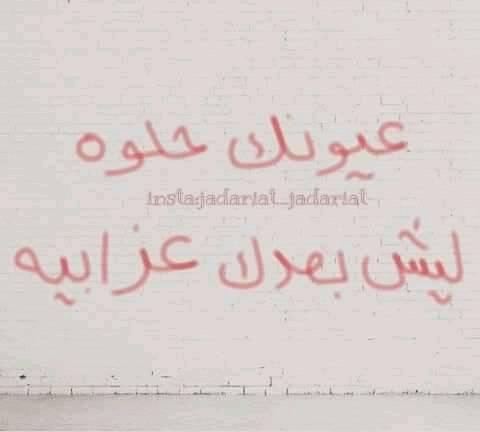 عيونك حلوه
insta:jadariat_jadariat
ليش بعدك عزابيه